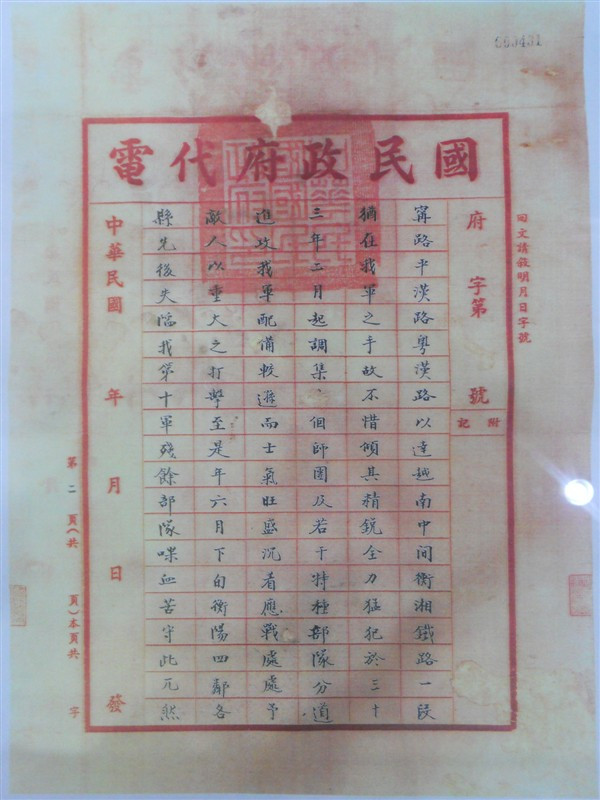 669431
國民政府代電
回文請敘明月日字號
府 字第 號
附記
甯路平漢路粵漢路以達越南中間衡湘鐵路一段
猶在我軍之手故不惜傾其精銳全力猛犯於三十
三年五月起調集 個師團及若干特種部隊分道
進攻我軍配備較遜而士氣旺盛沉着應戰處處予
敵人以重大之打擊至是年六月下旬衡陽四鄰各
縣先後失陷我第十軍殘餘部隊喋血苦守此兀然
中華民國 年 月 日 發
第二頁(共 頁)本頁共 字